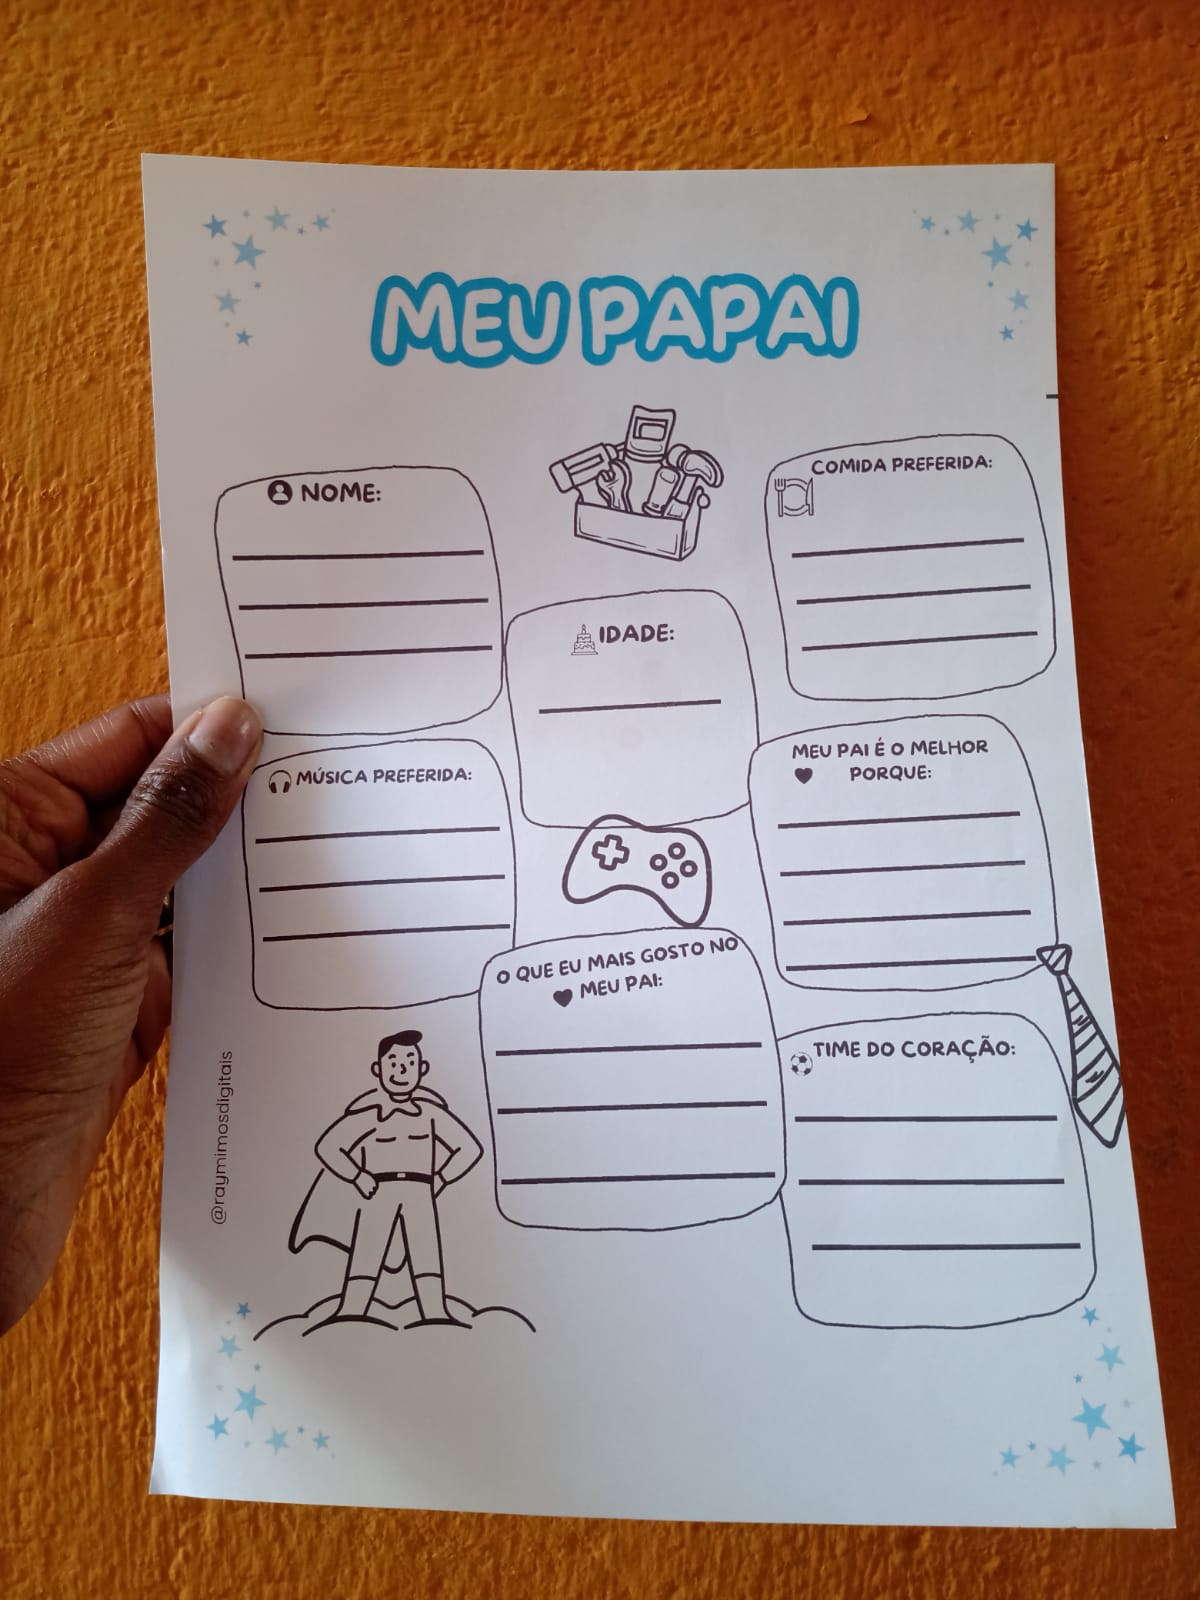 MEU PAPAI
NOME:
COMIDA PREFERIDA:
IDADE:
MÚSICA PREFERIDA:
MEU PAI É O MELHOR
PORQUE:
O QUE EU MAIS GOSTO NO
MEU PAI:
TIME DO CORAÇÃO:
@raymimosdigitais